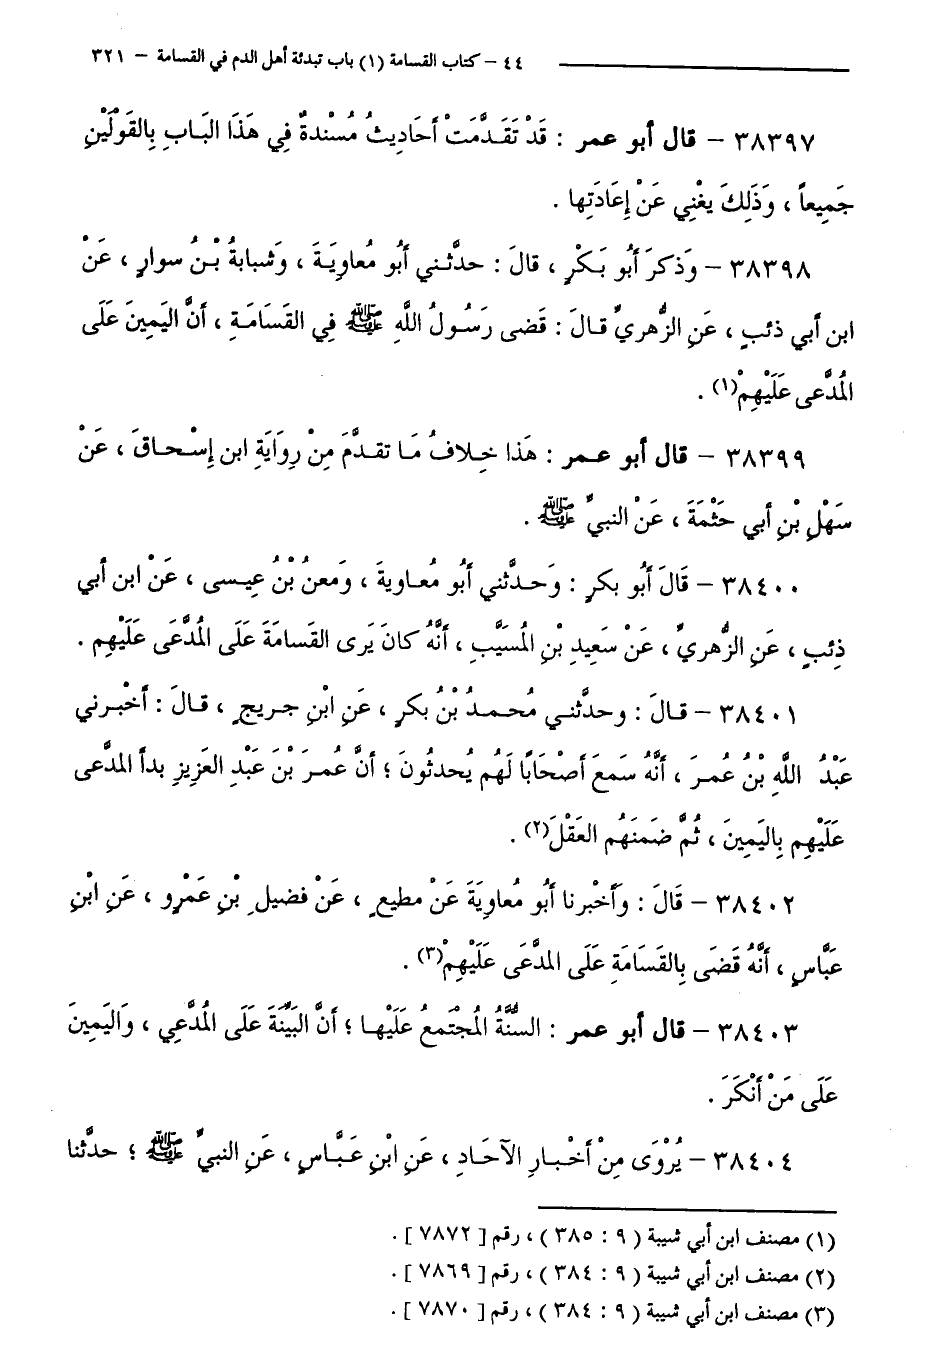 ٤٤ – كتاب القسامة (١) باب تبدئة أهل الدم في القسامة – ٣٢١
٣٨٣٩٧ – قال أبو عمر : قَدْ تَقَدَّمَتْ أحَادِيثُ مُسْندةٌ فِي هَذَا البَابِ بِالقَوْلَيْنِ
جَمِيعاً ، وَذَلِكَ يغْنِي عَنْ إعَادَتِها .
٣٨٣٩٨ – وَذكرَ أبُو بَكْرٍ ، قالَ : حدَّثني أبُو مُعاوِيَةَ ، وَشبابةُ بْنُ سوارٍ ، عَنْ
ابن أبي ذئبٍ ، عَنِ الزُّهريِّ قالَ : قَضى رَسُولُ اللَّهِ ﷺ فِي القَسَامَةِ ، أنَّ اليَمِينَ عَلَى
المُدَّعى عَلَيْهِمْ(١) .
٣٨٣٩٩ – قال أبو عمر : هَذا خِلافُ مَا تقدَّمَ مِنْ رِوَايَةِ ابن إسْحاقَ ، عَنْ
سَهْلِ بْنِ أبي حَثْمَةَ ، عَنْ النبيِّ ﷺ .
٣٨٤٠٠ – قَالَ أبُو بكرٍ : وَحدَّثني أبُو مُعاويةَ ، وَمعنُ بْنُ عِيسى ، عَنْ ابن أبي
ذِئبٍ ، عَنِ الزُّهريِّ ، عَنْ سَعِيدِ بْنِ المُسَيَّبِ ، أنَّهُ كانَ يَرى القَسامَةَ عَلَى المُدَّعَى عَلَيْهِم .
٣٨٤٠١ – قالَ : وحدَّثني مُحمدُ بْنُ بكرٍ ، عَنِ ابْنِ جريجٍ ، قالَ : أخْبرني
عَبْدُ اللَّهِ بْنُ عُمرَ ، أنَّهُ سَمعَ أصْحَابًا لَهُم يُحدثُونَ ؛ أنَّ عُمرَ بْنَ عَبْدِ العَزِيزِ بدأ المدَّعى
عَلَيْهِم بِاليَمِينَ ، ثُمَّ ضَمنَهُم العَقْلَ(٢) .
٣٨٤٠٢ – قَالَ : وَأخْبرنا أبُو مُعاوِيَةَ عَنْ مطيعٍ ، عَنْ فضيلِ بْنِ عَمْرٍو ، عَنِ ابْنِ
عَبَّاسٍ ، أنَّهُ قَضَى بِالقَسَامَةِ عَلَى المدَّعَى عَلَيْهِمْ(٣) .
٣٨٤٠٣ – قال أبو عمر : السنَّةُ المُجْتَمعُ عَلَيْها ؛ أنَّ البَيِّنَةَ عَلَى المُدَّعِي ، وَاليَمِينَ
عَلَى مَنْ أنْكَرَ .
٣٨٤٠٤ – يُرْوَى مِنْ أخْبارِ الآحَادِ ، عَنِ ابْنِ عَبَّاسٍ ، عَنِ النبيِّ ﷺ ؛ حدَّثنا
(١) مصنف ابن أبي شيبة ( ٩ : ٣٨٥ ) ، رقم [ ٧٨٧٢ ] .
(٢) مصنف ابن أبي شيبة ( ٩ : ٣٨٤ ) ، رقم [ ٧٨٦٩ ] .
(٣) مصنف ابن أبي شيبة ( ٩ : ٣٨٤ ) ، رقم [ ٧٨٧٠ ] .